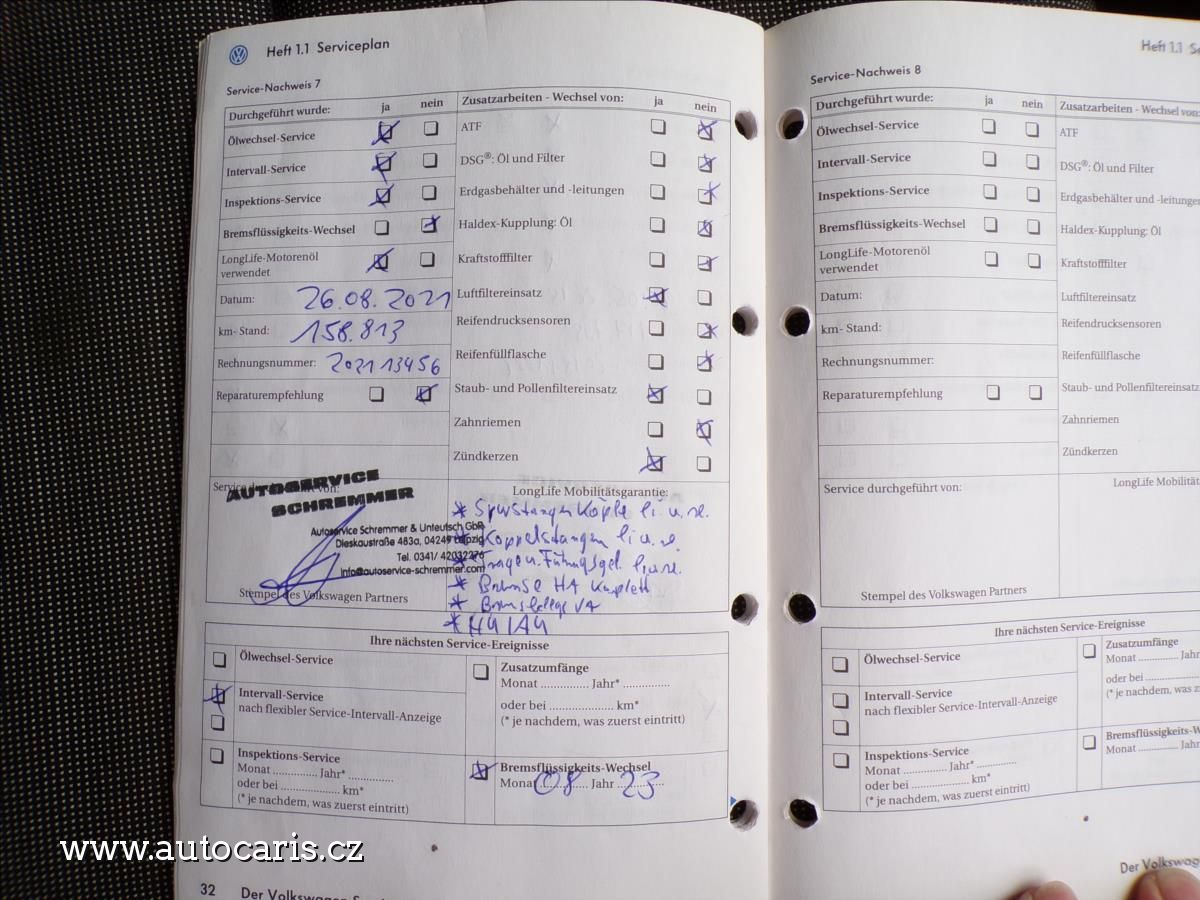 Heft 1.1 Serviceplan
Service-Nachweis 7
Durchgeführt wurde: ja nein
Ölwechsel-Service
Intervall-Service
Inspektions-Service
Bremsflüssigkeits-Wechsel
LongLife-Motorenöl
verwendet
Datum: 26.08.2021
km- Stand: 158.813
Rechnungsnummer: 202113456
Reparaturempfehlung
Zusatzarbeiten - Wechsel von: ja nein
ATF
DSG®: Öl und Filter
Erdgasbehälter und -leitungen
Haldex-Kupplung: Öl
Kraftstofffilter
Luftfiltereinsatz
Reifendrucksensoren
Reifenfüllflasche
Staub- und Pollenfiltereinsatz
Zahnriemen
Zündkerzen
Service von:
AUTOSERVICE
SCHREMMER
Autoservice Schremmer & Unteutsch GbR
Dieskaustraße 483a, 04249 Leipzig
Tel. 0341/ 42032276
info@autoservice-schremmer.com
Stempel des Volkswagen Partners
LongLife Mobilitätsgarantie:
* Spurstangenköpfe li. u. re.
* Koppelstangen li u. re.
* li. u. re.
* Bremse HA komplett
* VA
* HU/AU
Ihre nächsten Service-Ereignisse
Ölwechsel-Service
Intervall-Service
nach flexibler Service-Intervall-Anzeige
Inspektions-Service
Monat .............. Jahr* ..............
oder bei ........................ km*
(* je nachdem, was zuerst eintritt)
Zusatzumfänge
Monat ............... Jahr* ...............
oder bei ..................... km*
(* je nachdem, was zuerst eintritt)
Bremsflüssigkeits-Wechsel
Monat 08 Jahr 23
32 Der Volkswagen
Heft 1.1
Service-Nachweis 8
Durchgeführt wurde: ja nein
Ölwechsel-Service
Intervall-Service
Inspektions-Service
Bremsflüssigkeits-Wechsel
LongLife-Motorenöl
verwendet
Datum:
km- Stand:
Rechnungsnummer:
Reparaturempfehlung
Zusatzarbeiten - Wechsel von:
ATF
DSG®: Öl und Filter
Erdgasbehälter und -leitungen
Haldex-Kupplung: Öl
Kraftstofffilter
Luftfiltereinsatz
Reifendrucksensoren
Reifenfüllflasche
Staub- und Pollenfiltereinsatz
Zahnriemen
Zündkerzen
Service durchgeführt von:
LongLife Mobilität
Stempel des Volkswagen Partners
Ihre nächsten Service-Ereignisse
Ölwechsel-Service
Intervall-Service
nach flexibler Service-Intervall-Anzeige
Inspektions-Service
Monat .............. Jahr* ..............
oder bei ........................ km*
(* je nachdem, was zuerst eintritt)
Zusatzumfänge
Monat .............. Jahr
oder bei .....................
(* je nachdem, was zuerst
Bremsflüssigkeits-W
Monat .............. Jahr
Der Volkswagen
www.autocaris.cz